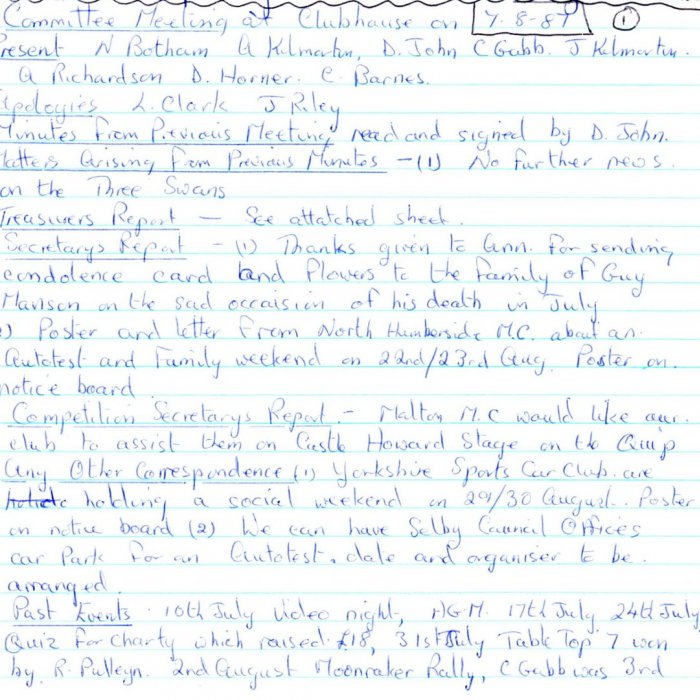 Committee Meeting at Clubhouse on 7-8-87 (1)
Present N Botham A Kilmartin, D. John C Gabb. J Kilmartin.
A Richardson D. Horner. C. Barnes.
Apologies L. Clark J Riley
Minutes from Previous Meeting read and signed by D. John.
Matters Arising from Previous Minutes - (1) No further news.
on the Three Swans
Treasurers Report - See attatched sheet.
Secretarys Report - (1) Thanks given to Ann. for sending
condolence card and flowers to the family of Guy
on the sad occaision of his death in July
2) Poster and letter from North Humberside M.C. about an
Autotest and Family weekend on 22nd/23rd Aug. Poster on
notice board
Competition Secretarys Report. - Malton M.C would like our
club to assist them on Castle Howard Stage on the Quip
Any Other Correspondence (1) Yorkshire Sports Car Club. are
holding a social weekend on 29/30 August. Poster
on notice board (2) We can have Selby Council Offices
car Park for an Autotest, date and organiser to be.
arranged.
Past Events. 10th July Video night, AGM. 17th July 24th July
Quiz for Charty which raised £18, 31st July Table Top 7 won
by R. Pulleyn. 2nd August Moonraker Rally, C Gabb was 3rd